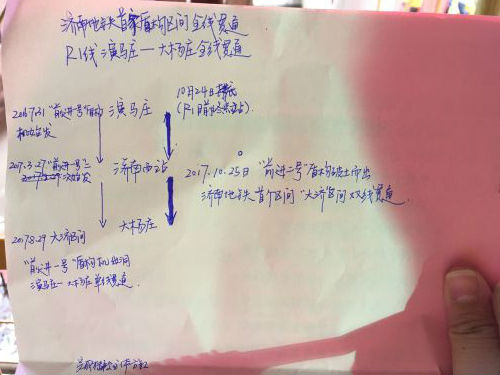 济南地铁首家盾构区间全线贯通
R1线演马庄—大杨庄全线贯通
10月24日
(R1目前终点站)
演马庄
2016.7.31 "前进一号"盾构
始发
济南西站
2017.3.27 "前进一号"二
次始发
2017.10.25日 "前进二号"盾构破土而出
济南地铁首个区间 "大济"区间双线贯通
大杨庄
2017.8.29 大济区间
"前进一号"盾构机出洞
演马庄—大杨庄单线贯通